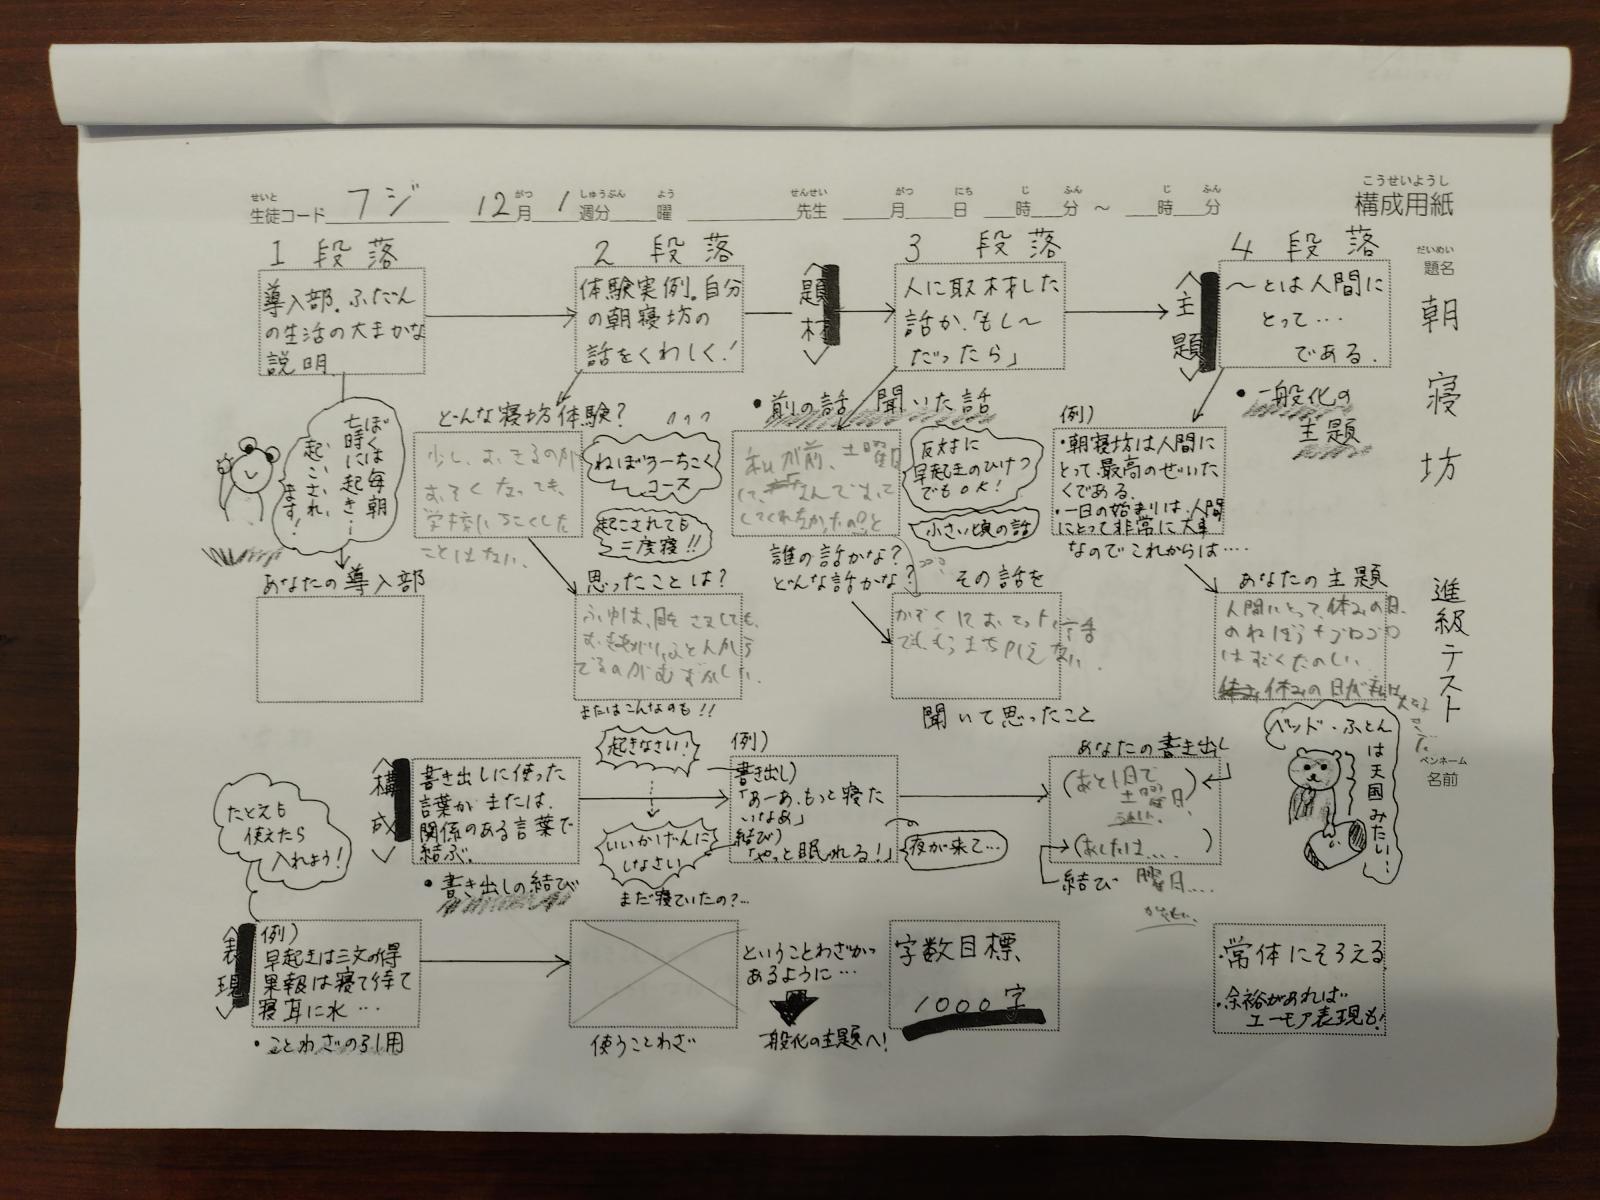 構成用紙
こうせいようし
せいと
生徒コード フジ
がつ しゅうぶん よう
12月 1週分 曜
せんせい
先生
がつ にち じ ふん じ ふん
月 日 時 分 ～ 時 分
だいめい
題名
朝寝坊
進級テスト
ペンネーム
名前
1段落
導入部。ふだん
の生活の大まかな
説明
2段落
体験実例。自分
の朝寝坊の
話をくわしく!
〈題材〉
3段落
人に取材した
話か、「もし～
だったら」
〈主題〉
4段落
～とは人間に
とって…
である.
ぼくは毎朝
七時に起き…
起こされ
ます!
あなたの導入部
どんな寝坊体験?
少し、おきるのが
おそくなっても、
学校にちこくした
ことはない.
ねぼう→ちこく
コース
起こされても
二度寝!!
思ったことは?
ふゆは、目をさましても、
ふとんから
でるのがむずかしい.
またはこんなのも!!
・前の話 聞いた話
私が前、土曜日
なんで
してくれなかったの?と
反対に
早起きのひけつ
でもOK!
小さい頃の話
誰の話かな?
どんな話かな?
その話を
かぞくに
聞いて思ったこと
・一般化の
主題
例)
・朝寝坊は人間に
とって、最高のぜいた
くである.
・一日の始まりは、人間
にとって非常に大事
なのでこれからは….
あなたの主題
人間にとって、休みの日、
のねぼう+ゴロゴロ
はすごくたのしい.
休みの日が私は
ベッド・ふとん
は天国みたい…
〈構成〉
書き出しに使った
言葉か または、
関係のある言葉で
結ぶ.
・書き出しの結び
起きなさい!
いいかげんに
しなさい
まだ寝ていたの?…
例)
書き出し)
「あーあ、もっと寝た
いなあ」
結び)
「やっと眠れる!」
夜が来て…
あなたの書き出し
(あと1日で
土曜日!
うれしい.
(あしたは….)
結び
月曜日….
たとえも
使えたら
入れよう!
〈表現〉
例)
早起きは三文の得
果報は寝て待て
寝耳に水…
・ことわざの引用
使うことわざ
ということわざが
あるように…
一般化の主題へ!
字数目標、
1000字
・常体にそろえる
・余裕があれば
ユーモア表現も!